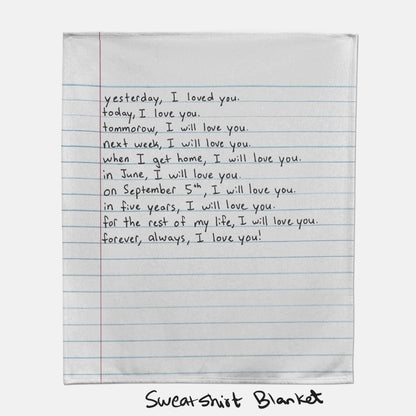 yesterday, I loved you.
today, I love you.
tommorow, I will love you.
next week, I will love you.
when I get home, I will love you.
in June, I will love you.
on September 5th, I will love you.
in five years, I will love you.
for the rest of my life, I will love you.
forever, always, I love you!
Sweatshirt Blanket